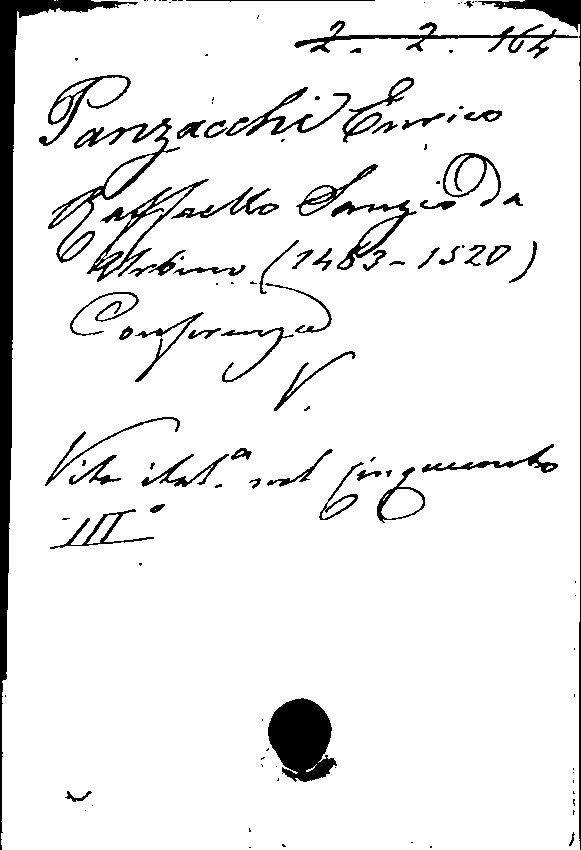 2. 2. 164
Panzacchi Enrico
Raffaello Sanzio da
Urbino (1483-1520)
Conferenza
V.
Vita ital.ª nel cinquecento
IIIº